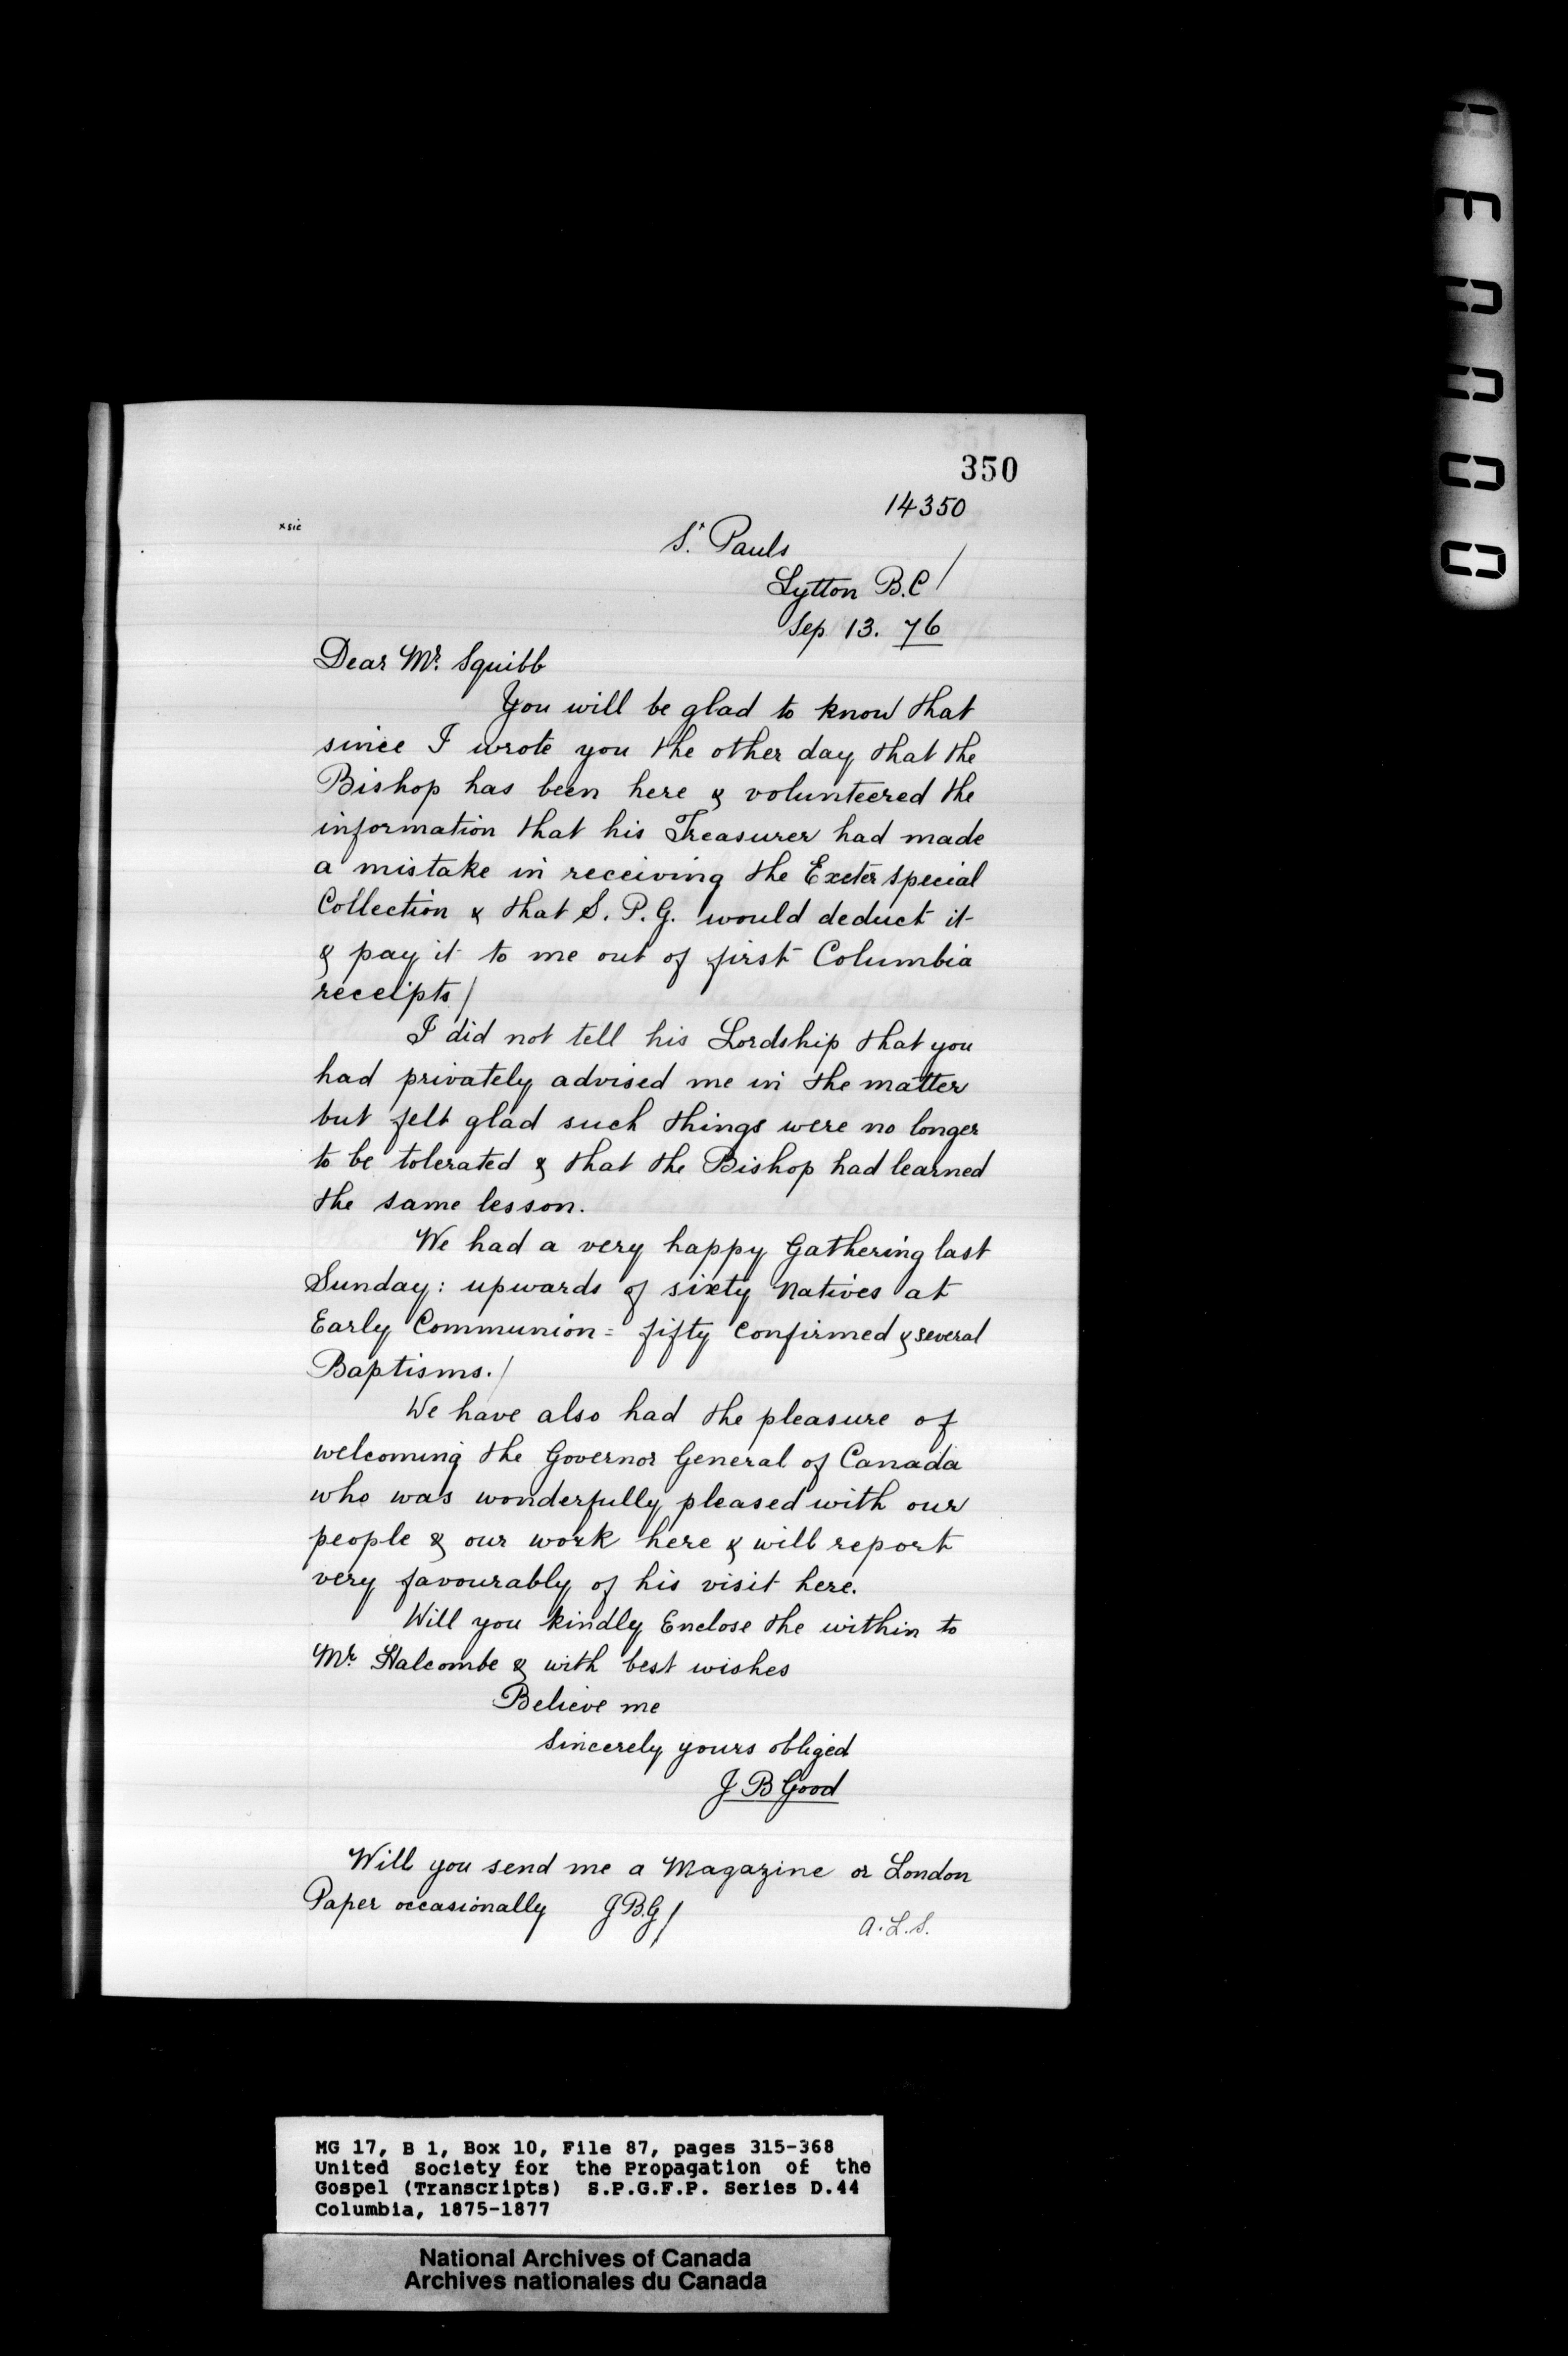 350
14350
× sic
St. Pauls
Lytton B.C/
Sep 13. 76
Dear Mr. Squibb
You will be glad to know that
since I wrote you the other day that the
Bishop has been here & volunteered the
information that his Treasurer had made
a mistake in receiving the Exeter special
Collection & that S. P. G. would deduct it
& pay it to me out of first Columbia
receipts/
I did not tell his Lordship that you
had privately advised me in the matter
but felt glad such things were no longer
to be tolerated & that the Bishop had learned
the same lesson.
We had a very happy Gathering last
Sunday: upwards of sixty Natives at
Early Communion = fifty Confirmed & several
Baptisms./
We have also had the pleasure of
welcoming the Governor General of Canada
who was wonderfully pleased with our
people & our work here & will report
very favourably of his visit here.
Will you kindly Enclose the within to
Mr. Halcombe & with best wishes
Believe me
Sincerely yours obliged
J B Good
Will you send me a Magazine or London
Paper occasionally J B.G/
A.L.S.
MG 17, B 1, Box 10, File 87, pages 315-368
United Society for the Propagation of the
Gospel (Transcripts) S.P.G.F.P. Series D.44
Columbia, 1875-1877
National Archives of Canada
Archives nationales du Canada